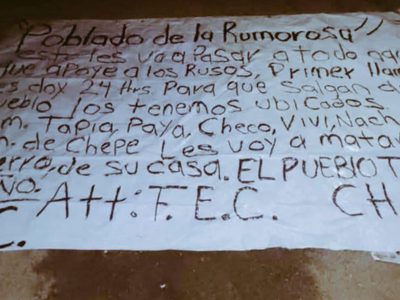 "Poblado de la Rumorosa"
esto les va a Pasar a todo aqu
que apoye a los Rusos, Primer llam
es doy 24 Hrs Para que Salgan d
ueblo los tenemos ubicados
m. Tapia, Paya, Checo, Vivi, Nach
n. de Chepe Les voy a mata
erro, de su casa. EL PUEBLO T
ÑO.
Att: F.E.C. CH
C.